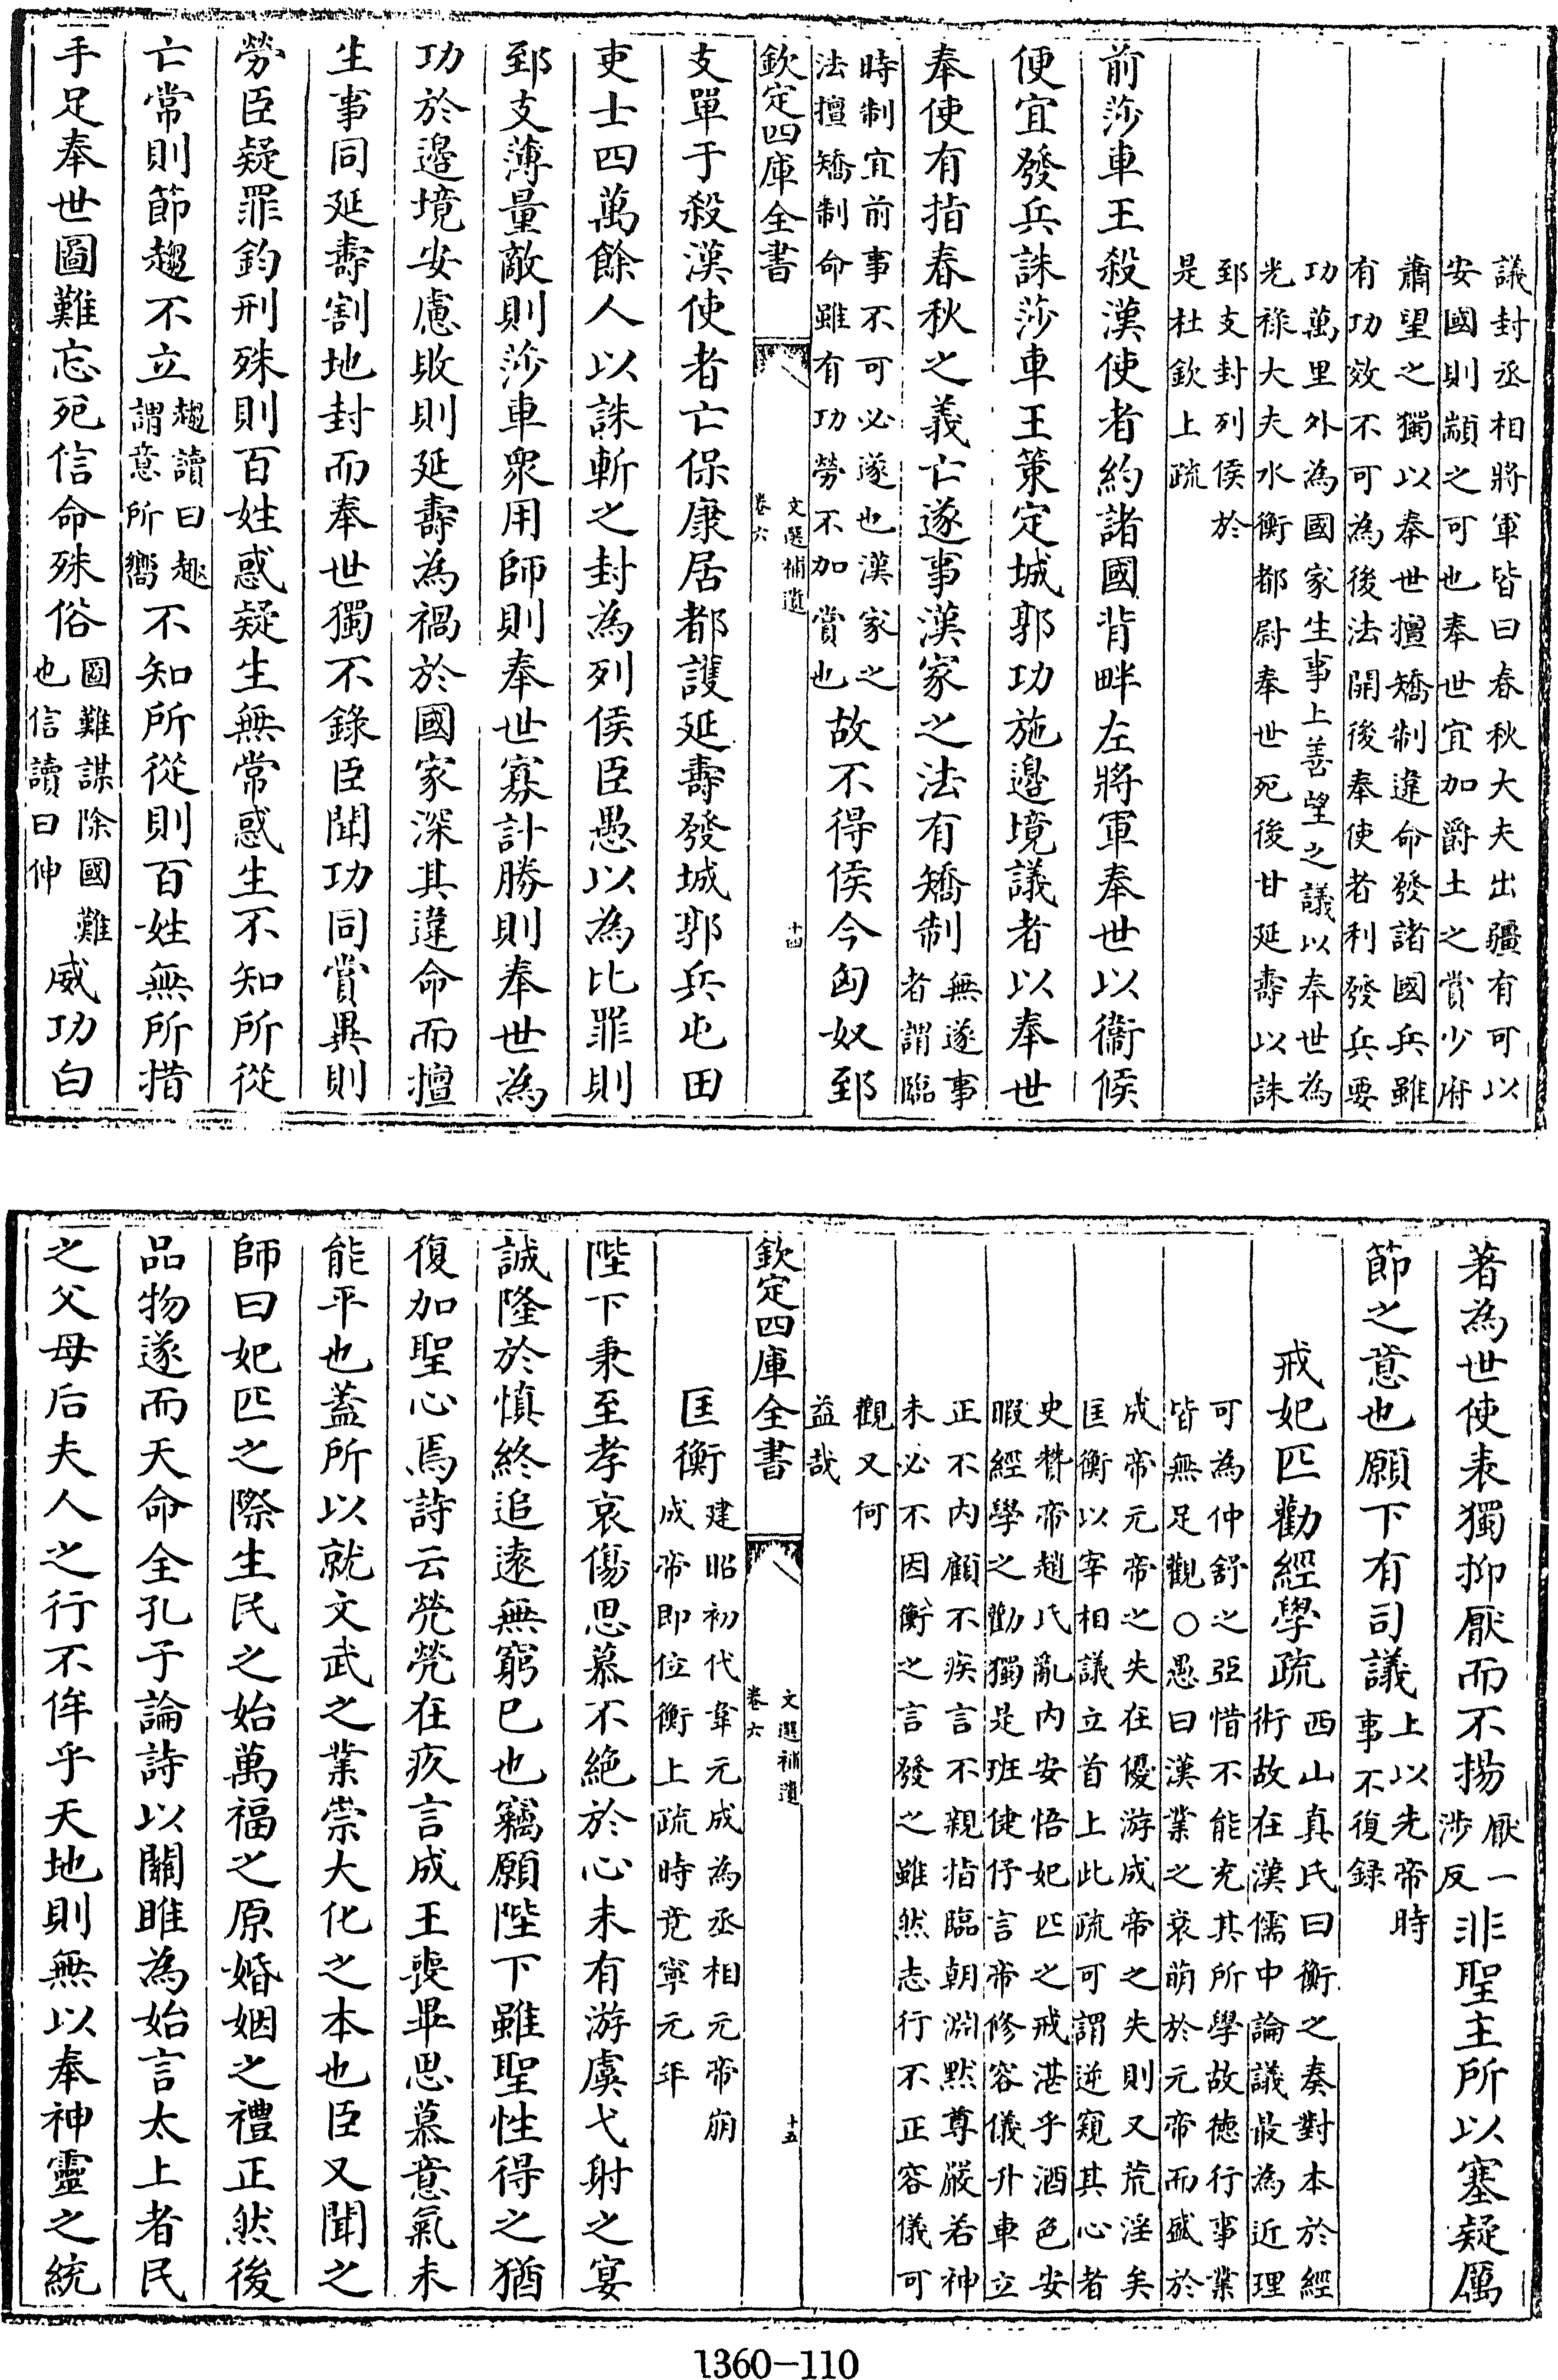 議封丞相將軍皆曰春秋大夫出疆有可以
安國則顓之可也奉世宜加爵土之賞少府
蕭望之獨以奉世擅矯制違命發諸國兵雖
有功效不可為後法開後奉使者利發兵要
功萬里外為國家生事上善望之議以奉世為
光祿大夫水衡都尉奉世死後甘延壽以誅
郅支封列侯於
是杜欽上疏
前莎車王殺漢使者約諸國背畔左將軍奉世以衞候
便宜發兵誅莎車王策定城郭功施邊境議者以奉世
奉使有指春秋之義亡遂事漢家之法有矯制
無遂事
者謂臨
時制宜前事不可必遂也漢家之
法擅矯制命雖有功勞不加賞也
故不得侯今匈奴郅
欽定四庫全書
文選補遺
卷六
十四
支單于殺漢使者亡保康居都護延壽發城郭兵屯田
吏士四萬餘人以誅斬之封為列侯臣愚以為比罪則
郅支薄量敵則莎車衆用師則奉世寡計勝則奉世為
功於邊境安慮敗則延壽為禍於國家深其違命而擅
生事同延壽割地封而奉世獨不錄臣聞功同賞異則
勞臣疑罪鈞刑殊則百姓惑疑生無常惑生不知所從
亡常則節趨不立
趨讀曰趣
謂意所嚮
不知所從則百姓無所措
手足奉世圖難忘死信命殊俗
圖難謀除國難
也信讀曰伸
威功白
著為世使表獨抑厭而不揚
厭一
涉反
非聖主所以塞疑厲
節之意也願下有司議
上以先帝時
事不復録
戒妃匹勸經學疏
西山真氏曰衡之奏對本於經
術故在漢儒中論議最為近理
可為仲舒之亞惜不能充其所學故德行事業
皆無足觀○愚曰漢業之衰萌於元帝而盛於
成帝元帝之失在優游成帝之失則又荒淫矣
匡衡以宰相議立首上此疏可謂逆窺其心者
史贊帝趙氏亂內安悟妃匹之戒湛乎酒色安
暇經學之勸獨是班倢伃言帝修容儀升車立
正不內顧不疾言不親指臨朝淵默尊嚴若神
未必不因衡之言發之雖然志行不正容儀可
觀又何
益哉
欽定四庫全書
文選補遺
卷六
十五
匡衡
建昭初代韋元成為丞相元帝崩
成帝即位衡上疏時竟寧元年
陛下秉至孝哀傷思慕不絶於心未有游虞弋射之宴
誠隆於慎終追遠無窮已也竊願陛下雖聖性得之猶
復加聖心焉詩云煢煢在疚言成王喪畢思慕意氣未
能平也蓋所以就文武之業崇大化之本也臣又聞之
師曰妃匹之際生民之始萬福之原婚姻之禮正然後
品物遂而天命全孔子論詩以關雎為始言太上者民
之父母后夫人之行不侔乎天地則無以奉神靈之統
1360-110